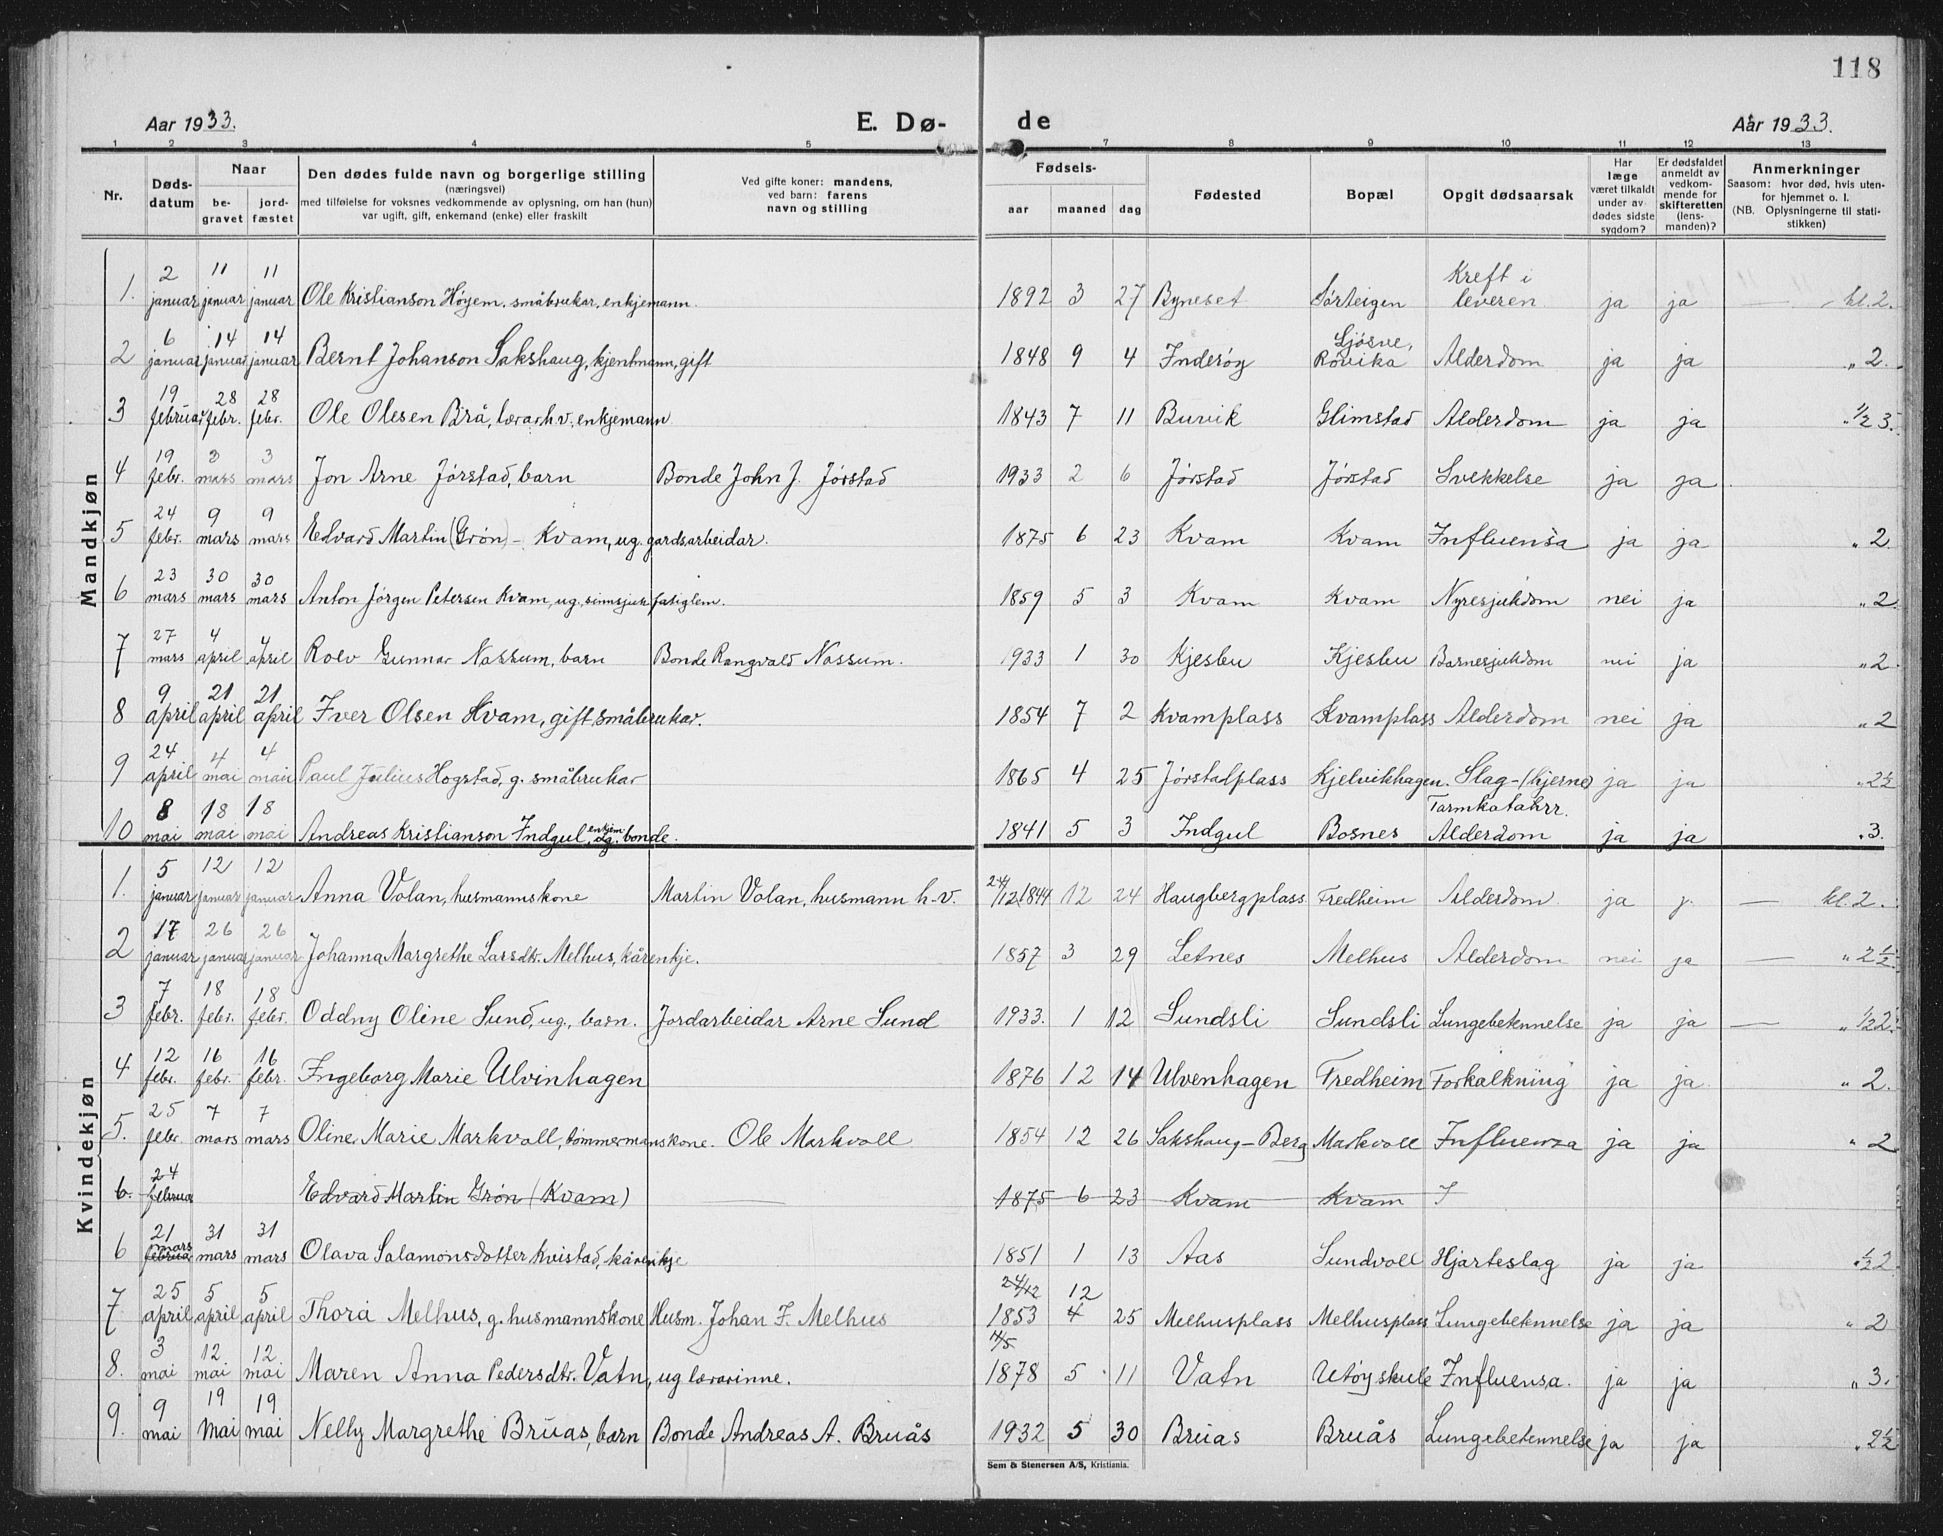 118
Aar 1933. E. Dø- de Aar 1933.
1 2 3 4 5 7 8 9 10 11 12 13
Nr. Døds-datum Naar be-gravet jord-fæstet Den dødes fulde navn og borgerlige stilling (næringsvei) med tilføielse for voksnes vedkommende av oplysning, om han (hun) var ugift, gift, enkemand (enke) eller fraskilt Ved gifte koner: mandens, ved barn: farens navn og stilling Fødsels- aar maaned dag Fødested Bopæl Opgit dødsaarsak Har læge været tilkaldt under av dødes sidste sygdom? Er dødsfaldet anmeldt av vedkom-mende for skifteretten (lens-manden)? Anmerkninger Saasom: hvor død, hvis uten-for hjemmet o. l. (NB. Oplysningerne til stati-stikken)
Mandkjøn
1. 2 januar 11 januar 11 januar Ole Kristianson Høyem, småbrukar, enkjemann. 1892 3 27 Byneset Sørteigen Kreft i leveren ja ja — kl. 2.
2 6 januar 14 januar 14 januar Bernt Johanson Sakshaug, kjentmann, gift 1848 9 4 Inderøy Sjøsve, Rovika Alderdom ja ja „ 2.
3 19 februar 28 febr. 28 febr. Ole Olesen Brå, lærar h.v. enkjemann 1843 7 11 Burvik Glimstad Alderdom ja ja „ ½ 3.
4 19 febr. 3 mars 3 mars Jon Arne Jørstad, barn Bonde John J. Jørstad 1933 2 6 Jørstad Jørstad Svekkelse ja ja
5 24 febr. 9 mars 9 mars Edvard Martin (Grøn) - Kvam, ug. gardsarbeidar. 1875 6 23 Kvam Kvam Influensa ja ja „ 2.
6 23 mars 30 mars 30 mars Anton Jørgen Petersen Kvam, ug. sinnsjuk fatiglem. 1859 5 3 Kvam Kvam Nyresjukdom nei ja „ 2.
7 27 mars 4 april 4 april Rolv Gunnar Nossum, barn Bonde Rangvald Nossum. 1933 1 30 Kjesbu Kjesbu Barnesjukdom nei ja „ 2
8 9 april 21 april 21 april Iver Olsen Kvam, gift, småbrukar. 1854 7 2 Kvamplass Kvamplass Alderdom nei ja „ 2
9 24 april 4 mai 4 mai Paul Julius Hogstad, g. småbrukar 1865 4 25 Jørstadplass Kjelvikhagen. Slag-(hjerne) ja ja „ 2½
10 8 mai 18 mai 18 mai Andreas Kristianson Indgul, enkjem. bonde. 1841 5 3 Indgul Bosnes Tarmkatahrr. Alderdom ja ja „ 3.
Kvindekjøn
1. 5 januar 12 januar 12 januar Anna Volan, husmannskone Martin Volan, husmann h.v. 24/12 1844 12 24 Haugbergplass Fredheim Alderdom ja j. — kl. 2.
2 17 januar 26 januar 26 januar Johanna Margrethe Larsdtr. Melhus, kårenkje. 1857 3 29 Letnes Melhus Alderdom nei ja — „ 2½
3 7 febr. 18 febr. 18 febr. Oddny Oline Sund, ug., barn. Jordarbeidar Arne Sund 1933. 1 12 Sundsli Sundsli Lungebetennelse ja ja — „ ½2.
4 12 febr. 16 febr. 16 febr. Ingeborg Marie Ulvinhagen 1876 12 14 Ulvenhagen Fredheim Forkalkning ja ja. „ 2.
5. 25 febr. 7 mars 7 mars Oline Marie Markvoll, tømmermanskone. Ole Markvoll 1854 12 26 Sakshaug-Berg Markvoll Influenza ja ja „ 2
6. 24 februa Edvard Martin Grøn (Kvam) — 1875 6 23 Kvam Kvam I
6 21 februar mars 31 mars 31 mars Olava Salamonsdotter Kvistad, kårenkje 1851 1 13 Aas Sundvoll Hjarteslag ja ja „ ½2
7 25 april 5 april 5 april Thora Melhus, g. husmannskone Husm. Johan F. Melhus 24/12 1853 4 12 25 Melhusplass Melhusplass Lungebetennelse ja ja „ 2
8. 3 mai 12 mai 12 mai Maren Anna Pedersdtr. Vatn, ug lærarinne. 11/5 1878 5 11 Vatn Utøy skule Influensa. ja ja „ 3.
9. 9 mai 19 mai 19 mai Nelly Margrethe Bruas, barn Bonde Andreas A. Bruås 1932 5 30 Bruas Bruås Lungebetennelse ja ja „ 2½
Sem & Stenersen A/S, Kristiania.